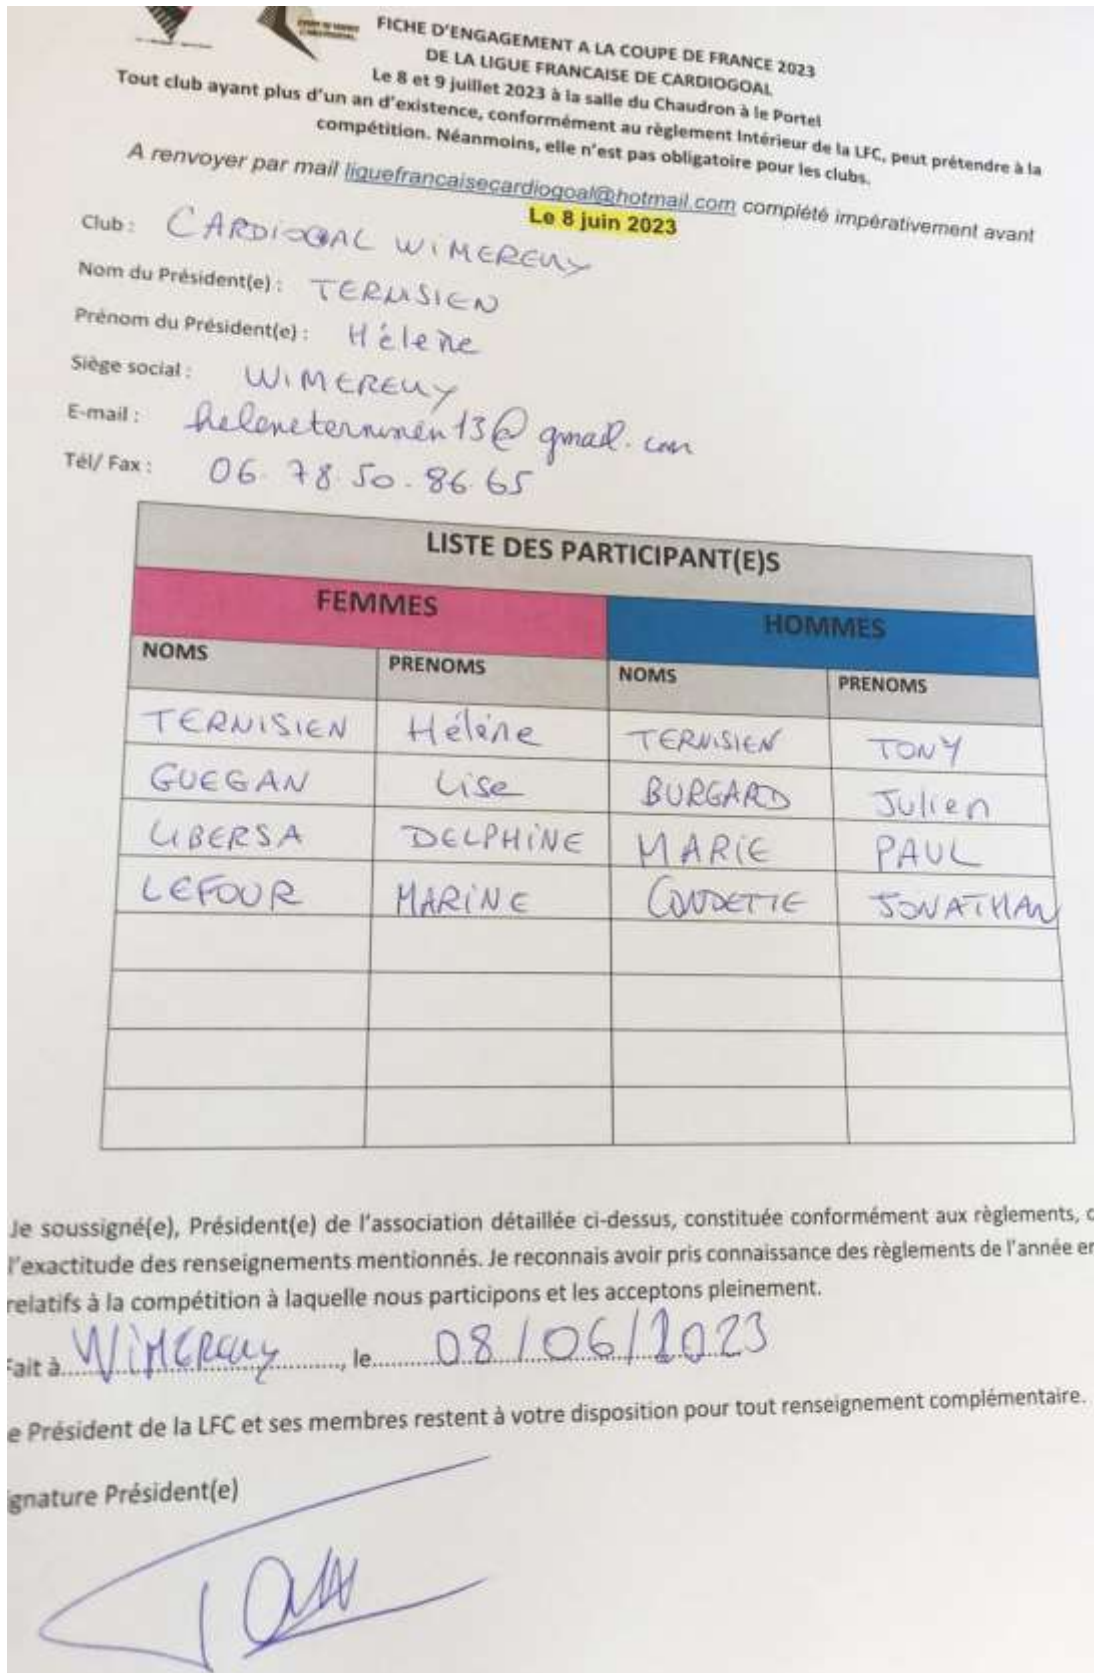 FICHE D'ENGAGEMENT A LA COUPE DE FRANCE 2023
DE LA LIGUE FRANCAISE DE CARDIOGOAL
Le 8 et 9 juillet 2023 à la salle du Chaudron à le Portel
Tout club ayant plus d'un an d'existence, conformément au règlement Intérieur de la LFC, peut prétendre à la
compétition. Néanmoins, elle n'est pas obligatoire pour les clubs.
A renvoyer par mail liguefrancaisecardiogoal@hotmail.com complété impérativement avant
Le 8 juin 2023
Club : CARDIOGOAL WIMEREUX
Nom du Président(e) : TERNISIEN
Prénom du Président(e) : Hélène
Siège social : WIMEREUX
E-mail : heleneternisien13@gmail.com
Tél/ Fax : 06.78.50.86 65
LISTE DES PARTICIPANT(E)S
FEMMES HOMMES
NOMS PRENOMS NOMS PRENOMS
TERNISIEN Hélène TERNISIEN TONY
GUEGAN Lise BURGARD Julien
LIBERSA DELPHINE MARIE PAUL
LEFOUR MARINE COUDETTE JONATHAN
Je soussigné(e), Président(e) de l'association détaillée ci-dessus, constituée conformément aux règlements,
l'exactitude des renseignements mentionnés. Je reconnais avoir pris connaissance des règlements de l'année
relatifs à la compétition à laquelle nous participons et les acceptons pleinement.
Fait à WIMEREUX, le 08/06/2023
e Président de la LFC et ses membres restent à votre disposition pour tout renseignement complémentaire.
gnature Président(e)